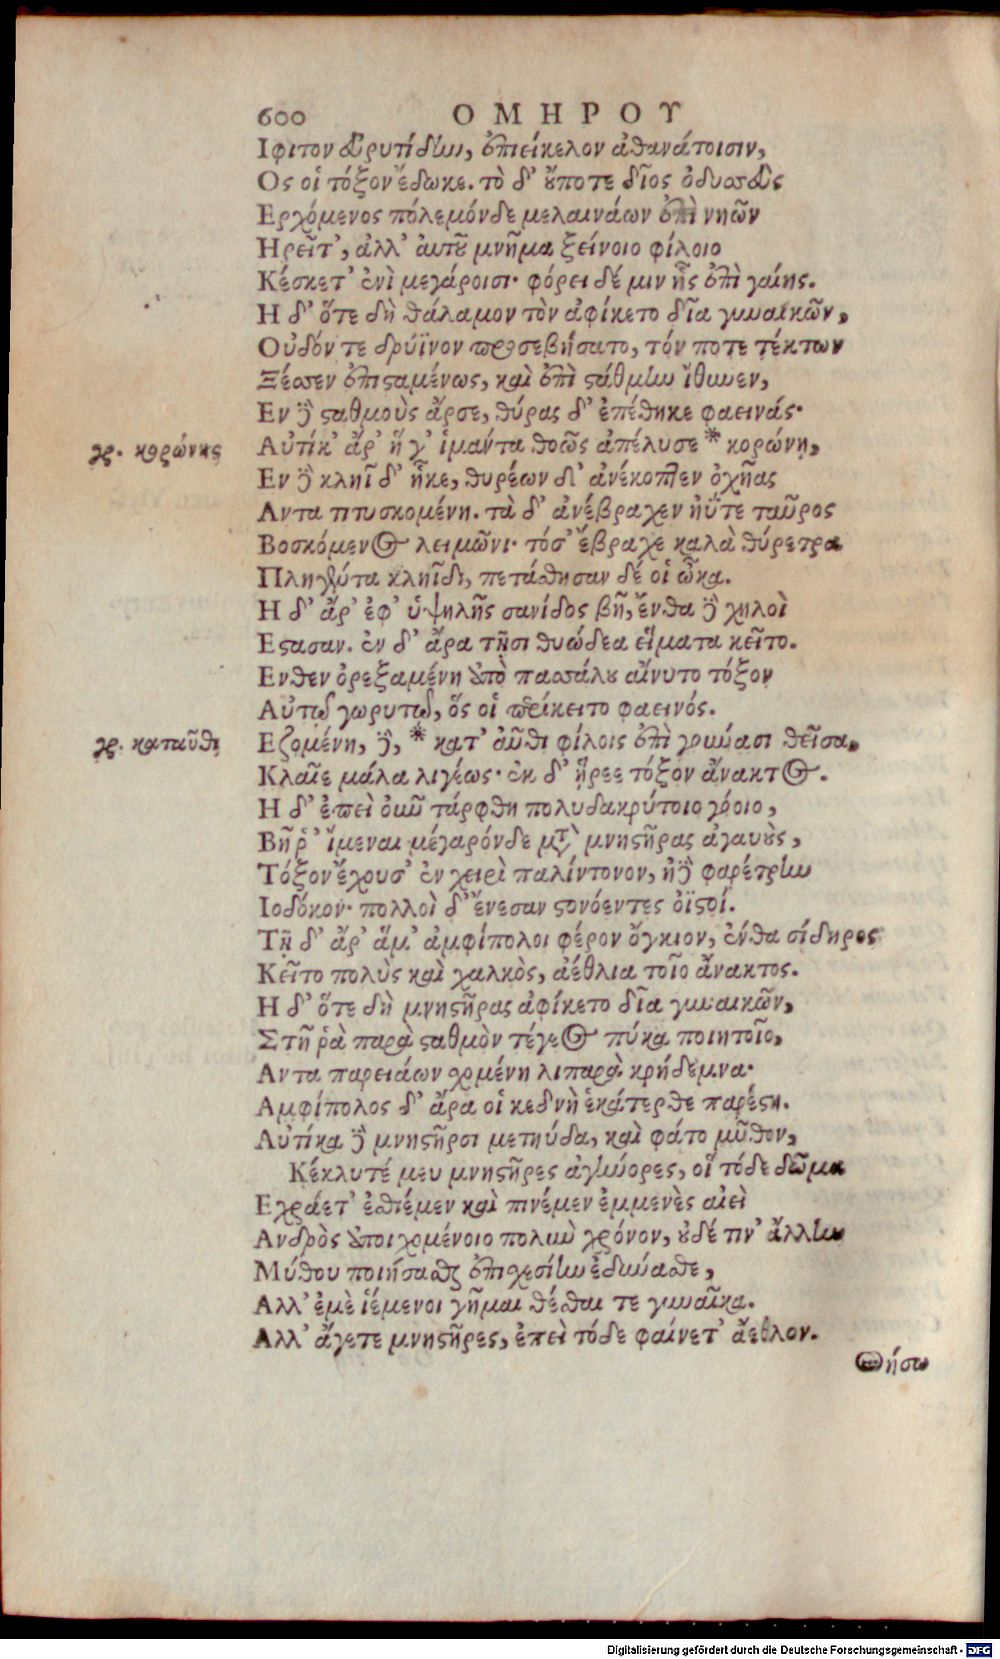 600 ΟΜΗΡΟΥ
Ιφιτον ἐυρυτίδην, ἐπιείκελον ἀθανάτοισιν,
Ος οἱ τόξον ἔδωκε. τὸ δ' οὔποτε δῖος ὀδυσσεὺς
Ερχόμενος πόλεμόνδε μελαινάων ἐπὶ νηῶν
Ηρεῖτ', ἀλλ' ἀυτοῦ μνῆμα ξείνοιο φίλοιο
Κέσκετ' ἐνὶ μεγάροισι· φόρει δέ μιν ἧς ἐπὶ γαίης.
Η δ' ὅτε δὴ θάλαμον τὸν ἀφίκετο δῖα γυναικῶν,
Οὐδόν τε δρύϊνον προσεβήσατο, τόν ποτε τέκτων
Ξέσσεν ἐπισταμένως, καὶ ἐπὶ στάθμην ἴθυνεν,
Εν δὲ σταθμοὺς ἄρσε, θύρας δ' ἐπέθηκε φαεινάς·
γρ. κορώνης Αὐτίκ' ἄρ' ἥ γ' ἱμάντα θοῶς ἀπέλυσε * κορώνη,
Εν δὲ κληῖδ' ἧκε, θυρέων δ' ἀνέκοπτεν ὀχῆας
Αντα τιτυσκομένη. τὰ δ' ἀνέβραχεν ἠΰτε ταῦρος
Βοσκόμενος λειμῶνι· τόσ' ἔβραχε καλὰ θύρετρα
Πληγέντα κληῗδι, πετάσθησαν δέ οἱ ὦκα.
Η δ' ἄρ' ἐφ' ὑψηλῆς σανίδος βῆ, ἔνθα δὲ χηλοὶ
Εστασαν. ἐν δ' ἄρα τῇσι θυώδεα εἵματα κεῖτο.
Ενθεν ὀρεξαμένη ἀπὸ πασσάλου αἴνυτο τόξον
Αὐτῷ γωρυτῷ, ὅς οἱ περίκειτο φαεινός.
γρ. καταῦθι Εζομένη, δὲ, * κατ' αὖθι φίλοις ἐπὶ γούνασι θεῖσα,
Κλαῖε μάλα λιγέως· ἐκ δ' ᾕρεε τόξον ἄνακτος.
Η δ' ἐπεὶ οὖν τάρφθη πολυδακρύτοιο γόοιο,
Βῆ ῥ' ἴμεναι μέγαρόνδε μετὰ μνηστῆρας ἀγαυοὺς,
Τόξον ἔχουσ' ἐν χειρὶ παλίντονον, ἠδὲ φαρέτρην
Ιοδόκον· πολλοὶ δ' ἔνεσαν στονόεντες ὀϊστοί.
Τῇ δ' ἄρ' ἅμ' ἀμφίπολοι φέρον ὄγκιον, ἔνθα σίδηρος
Κεῖτο πολὺς καὶ χαλκὸς, ἀέθλια τοῖο ἄνακτος.
Η δ' ὅτε δὴ μνηστῆρας ἀφίκετο δῖα γυναικῶν,
Στῆ ῥὰ παρὰ σταθμὸν τέγεος πύκα ποιητοῖο,
Αντα παρειάων σχομένη λιπαρὰ κρήδεμνα·
Αμφίπολος δ' ἄρα οἱ κεδνὴ ἑκάτερθε παρέστη.
Αὐτίκα δὲ μνηστῆρσι μετηύδα, καὶ φάτο μῦθον,
Κέκλυτέ μευ μνηστῆρες ἀγήνορες, οἳ τόδε δῶμα
Εχράετ' ἐσθιέμεν καὶ πινέμεν ἐμμενὲς αἰεὶ
Ανδρὸς ἀποιχομένοιο πολὺν χρόνον, οὐδέ τιν' ἄλλην
Μύθου ποιήσασθαι ἐπισχεσίην ἐδύνασθε,
Αλλ' ἐμὲ ἱέμενοι γῆμαι θέσθαι τε γυναῖκα.
Αλλ' ἄγετε μνηστῆρες, ἐπεὶ τόδε φαίνετ' ἄεθλον.
Θήσω
Digitalisierung gefördert durch die Deutsche Forschungsgemeinschaft - DFG